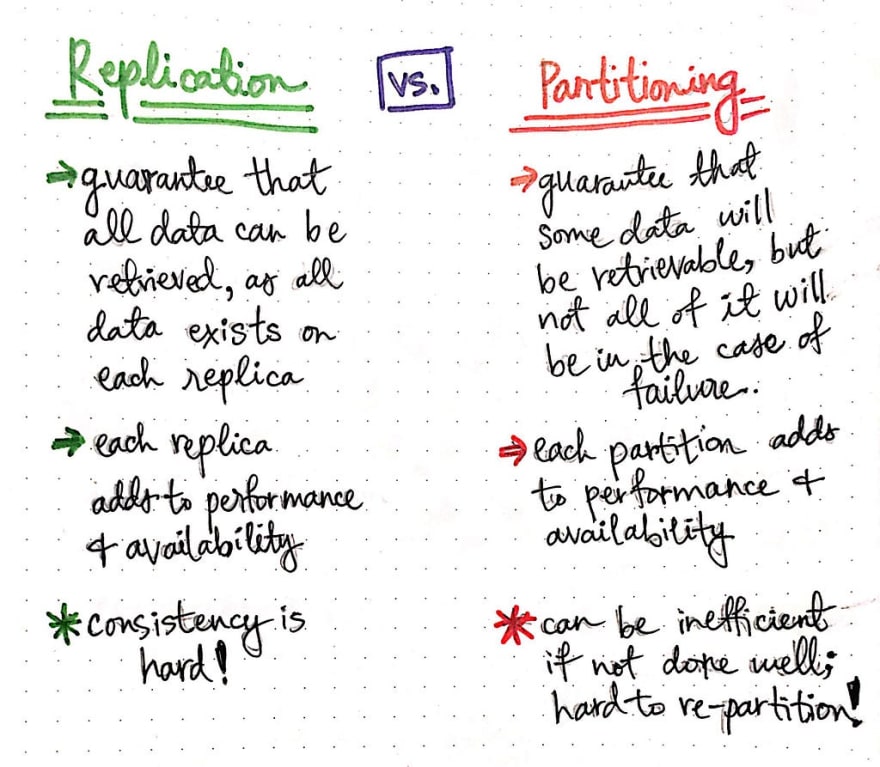 Replication vs. Partitioning
→ guarantee that
all data can be
retrieved, as all
data exists on
each replica
→ each replica
adds to performance
& availability
* consistency is
hard!
→ guarantee that
some data will
be retrievable, but
not all of it will
be in the case of
failure.
⇒ each partition adds
to performance &
availability
* can be inefficient
if not done well;
hard to re-partition!